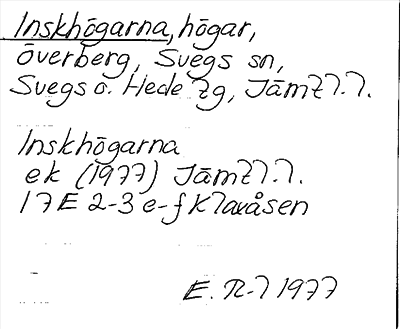 Inskhögarna, högar,
Överberg, Svegs sn,
Svegs o. Hede tg, Jämtl. l.
Inskhögarna
ek (1977) Jämtl. l.
17E 2-3 e-f Klaxåsen
E. R-l 1977